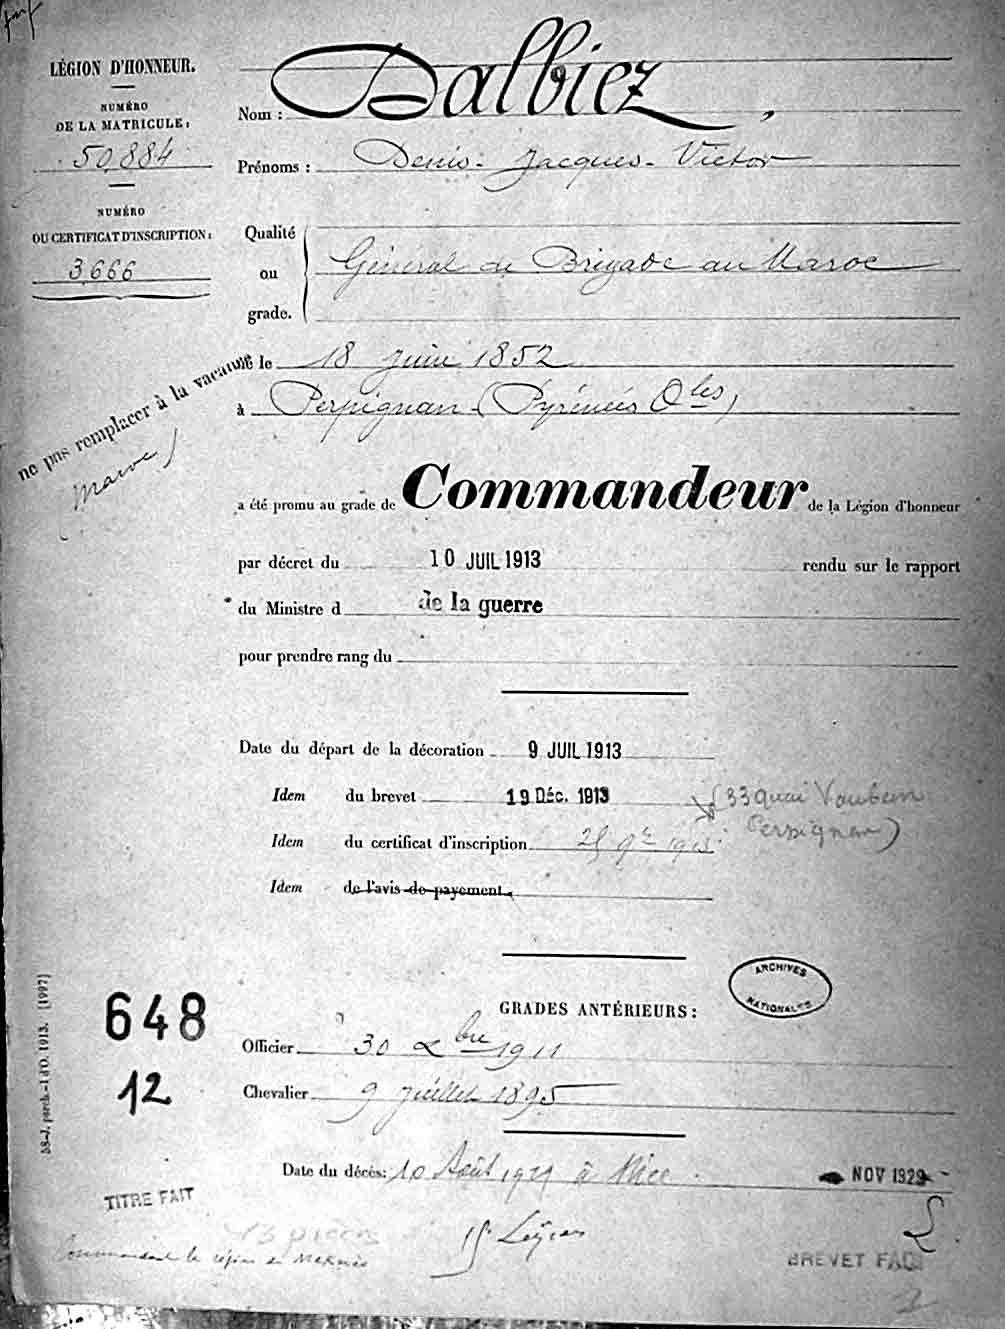 LÉGION D'HONNEUR.
NUMÉRO
DE LA MATRICULE:
50,884
NUMÉRO
DU CERTIFICAT D'INSCRIPTION:
3666
Nom : Dalbiez,
Prénoms : Denis-Jacques-Victor
Qualité
ou
grade.
Général de Brigade au Maroc
né le 18 Juin 1852
à Perpignan (Pyrénées Oles)
ne pas remplacer à la vacature
(Maroc)
a été promu au grade de Commandeur de la Légion d'honneur
par décret du 10 JUIL 1913 rendu sur le rapport
du Ministre d de la guerre
pour prendre rang du
Date du départ de la décoration 9 JUIL 1913
Idem du brevet 19 Déc. 1913 (33 quai Vauban
Perpignan)
Idem du certificat d'inscription
Idem de l'avis de payement.
ARCHIVES
NATIONALES
GRADES ANTÉRIEURS:
648
12
Officier 30 Xbre 1911
Chevalier 9 Juillet 1895
Date du décès: 10 Août 1929 à Nice
NOV 1929
58-J. parch.-I d'O. 1913. [1997]
TITRE FAIT
13 pièces
Commandant la région de Meknès
BREVET FAIT